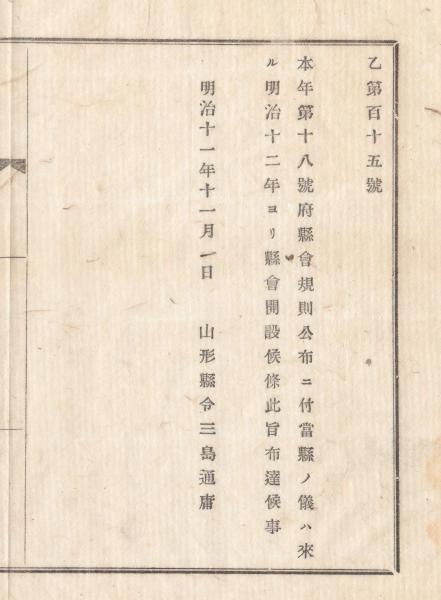 乙第百十五號
本年第十八號府縣會規則公布ニ付當縣ノ儀ハ來
ル明治十二年ヨリ縣會開設候條此旨布達候事
明治十一年十一月一日　山形縣令三島通庸